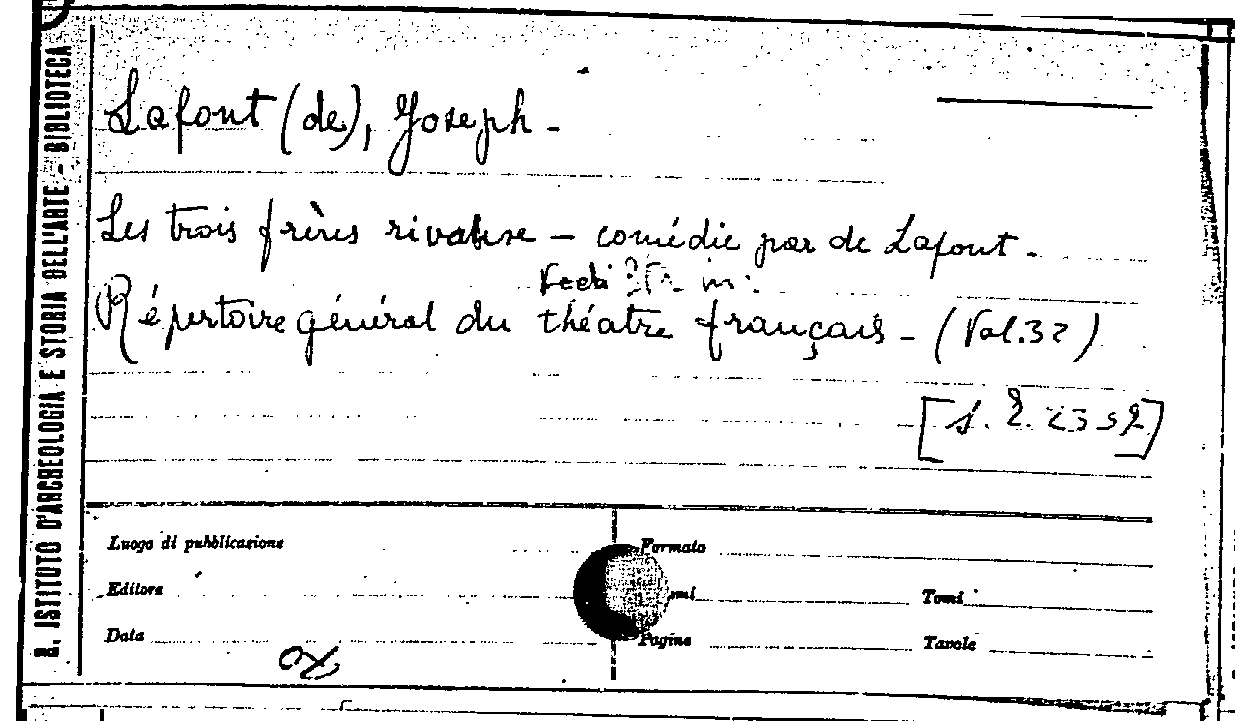 R. ISTITUTO D'ARCHEOLOGIA E STORIA DELL'ARTE - BIBLIOTECA
Lafont (de), Joseph -
Les trois frères - comédie par de Lafont -
Répertoire général du théatre français - (Vol. 32)
Luogo di pubblicazione
Formato
Editore
Tomi
Data
Pagine
Tavole